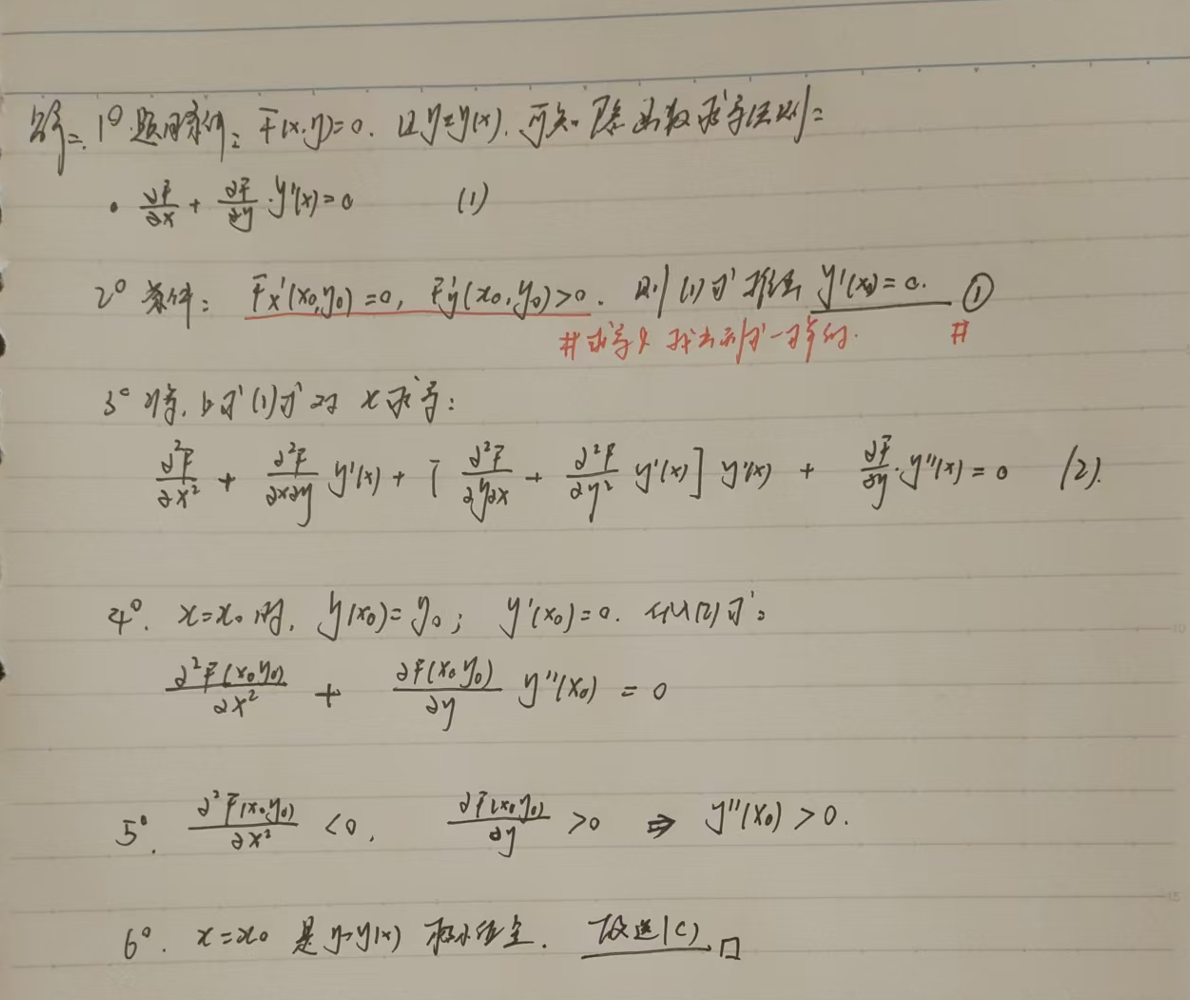 解: 1° 题目条件: F(x,y)=0. 且y=y(x). 可知 隐函数求导法则:
• ∂F/∂x + ∂F/∂y · y'(x)=0 (1)
2° 条件: Fx'(x₀,y₀)=0, Fy'(x₀,y₀)>0. 则(1)式推出 y'(x₀)=0. ①
# 求导
3° 对 (1)式对 x 求导:
∂²F/∂x² + ∂²F/∂x∂y y'(x) + [∂²F/∂y∂x + ∂²F/∂y² y'(x)] y'(x) + ∂F/∂y · y''(x) = 0 (2).
4°. x=x₀ 时, y(x₀)=y₀; y'(x₀)=0. 代入(2)式:
∂²F(x₀y₀)/∂x² + ∂F(x₀y₀)/∂y y''(x₀) = 0
5°. ∂²F(x₀y₀)/∂x² <0, ∂F(x₀y₀)/∂y >0 ⇒ y''(x₀)>0.
6°. x=x₀ 是 y=y(x) 极小值点. 故选(C). □